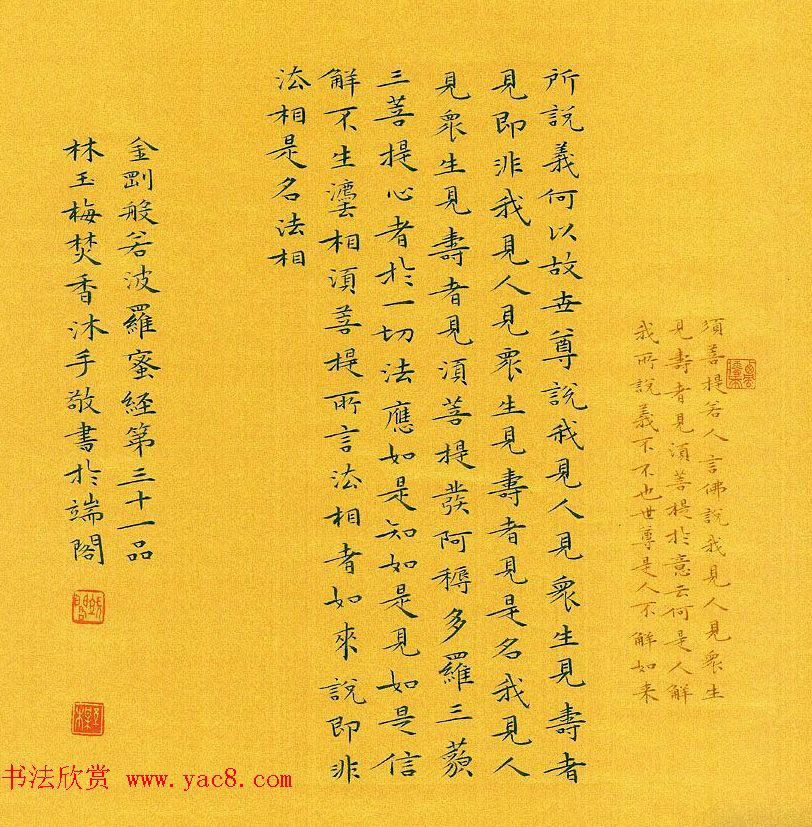 須菩提若人言佛說我見人見衆生
見壽者見須菩提於意云何是人解
我所說義不不也世尊是人不解如来
所說義何以故世尊說我見人見衆生見壽者
見即非我見人見衆生見壽者見是名我見人
見衆生見壽者見須菩提發阿耨多羅三藐
三菩提心者於一切法應如是知如是見如是信
解不生灋相須菩提所言法相者如來說即非
法相是名法相
金剛般若波羅蜜経第三十一品
林玉梅焚香沐手敬書於端閣
书法欣赏 www.yac8.com